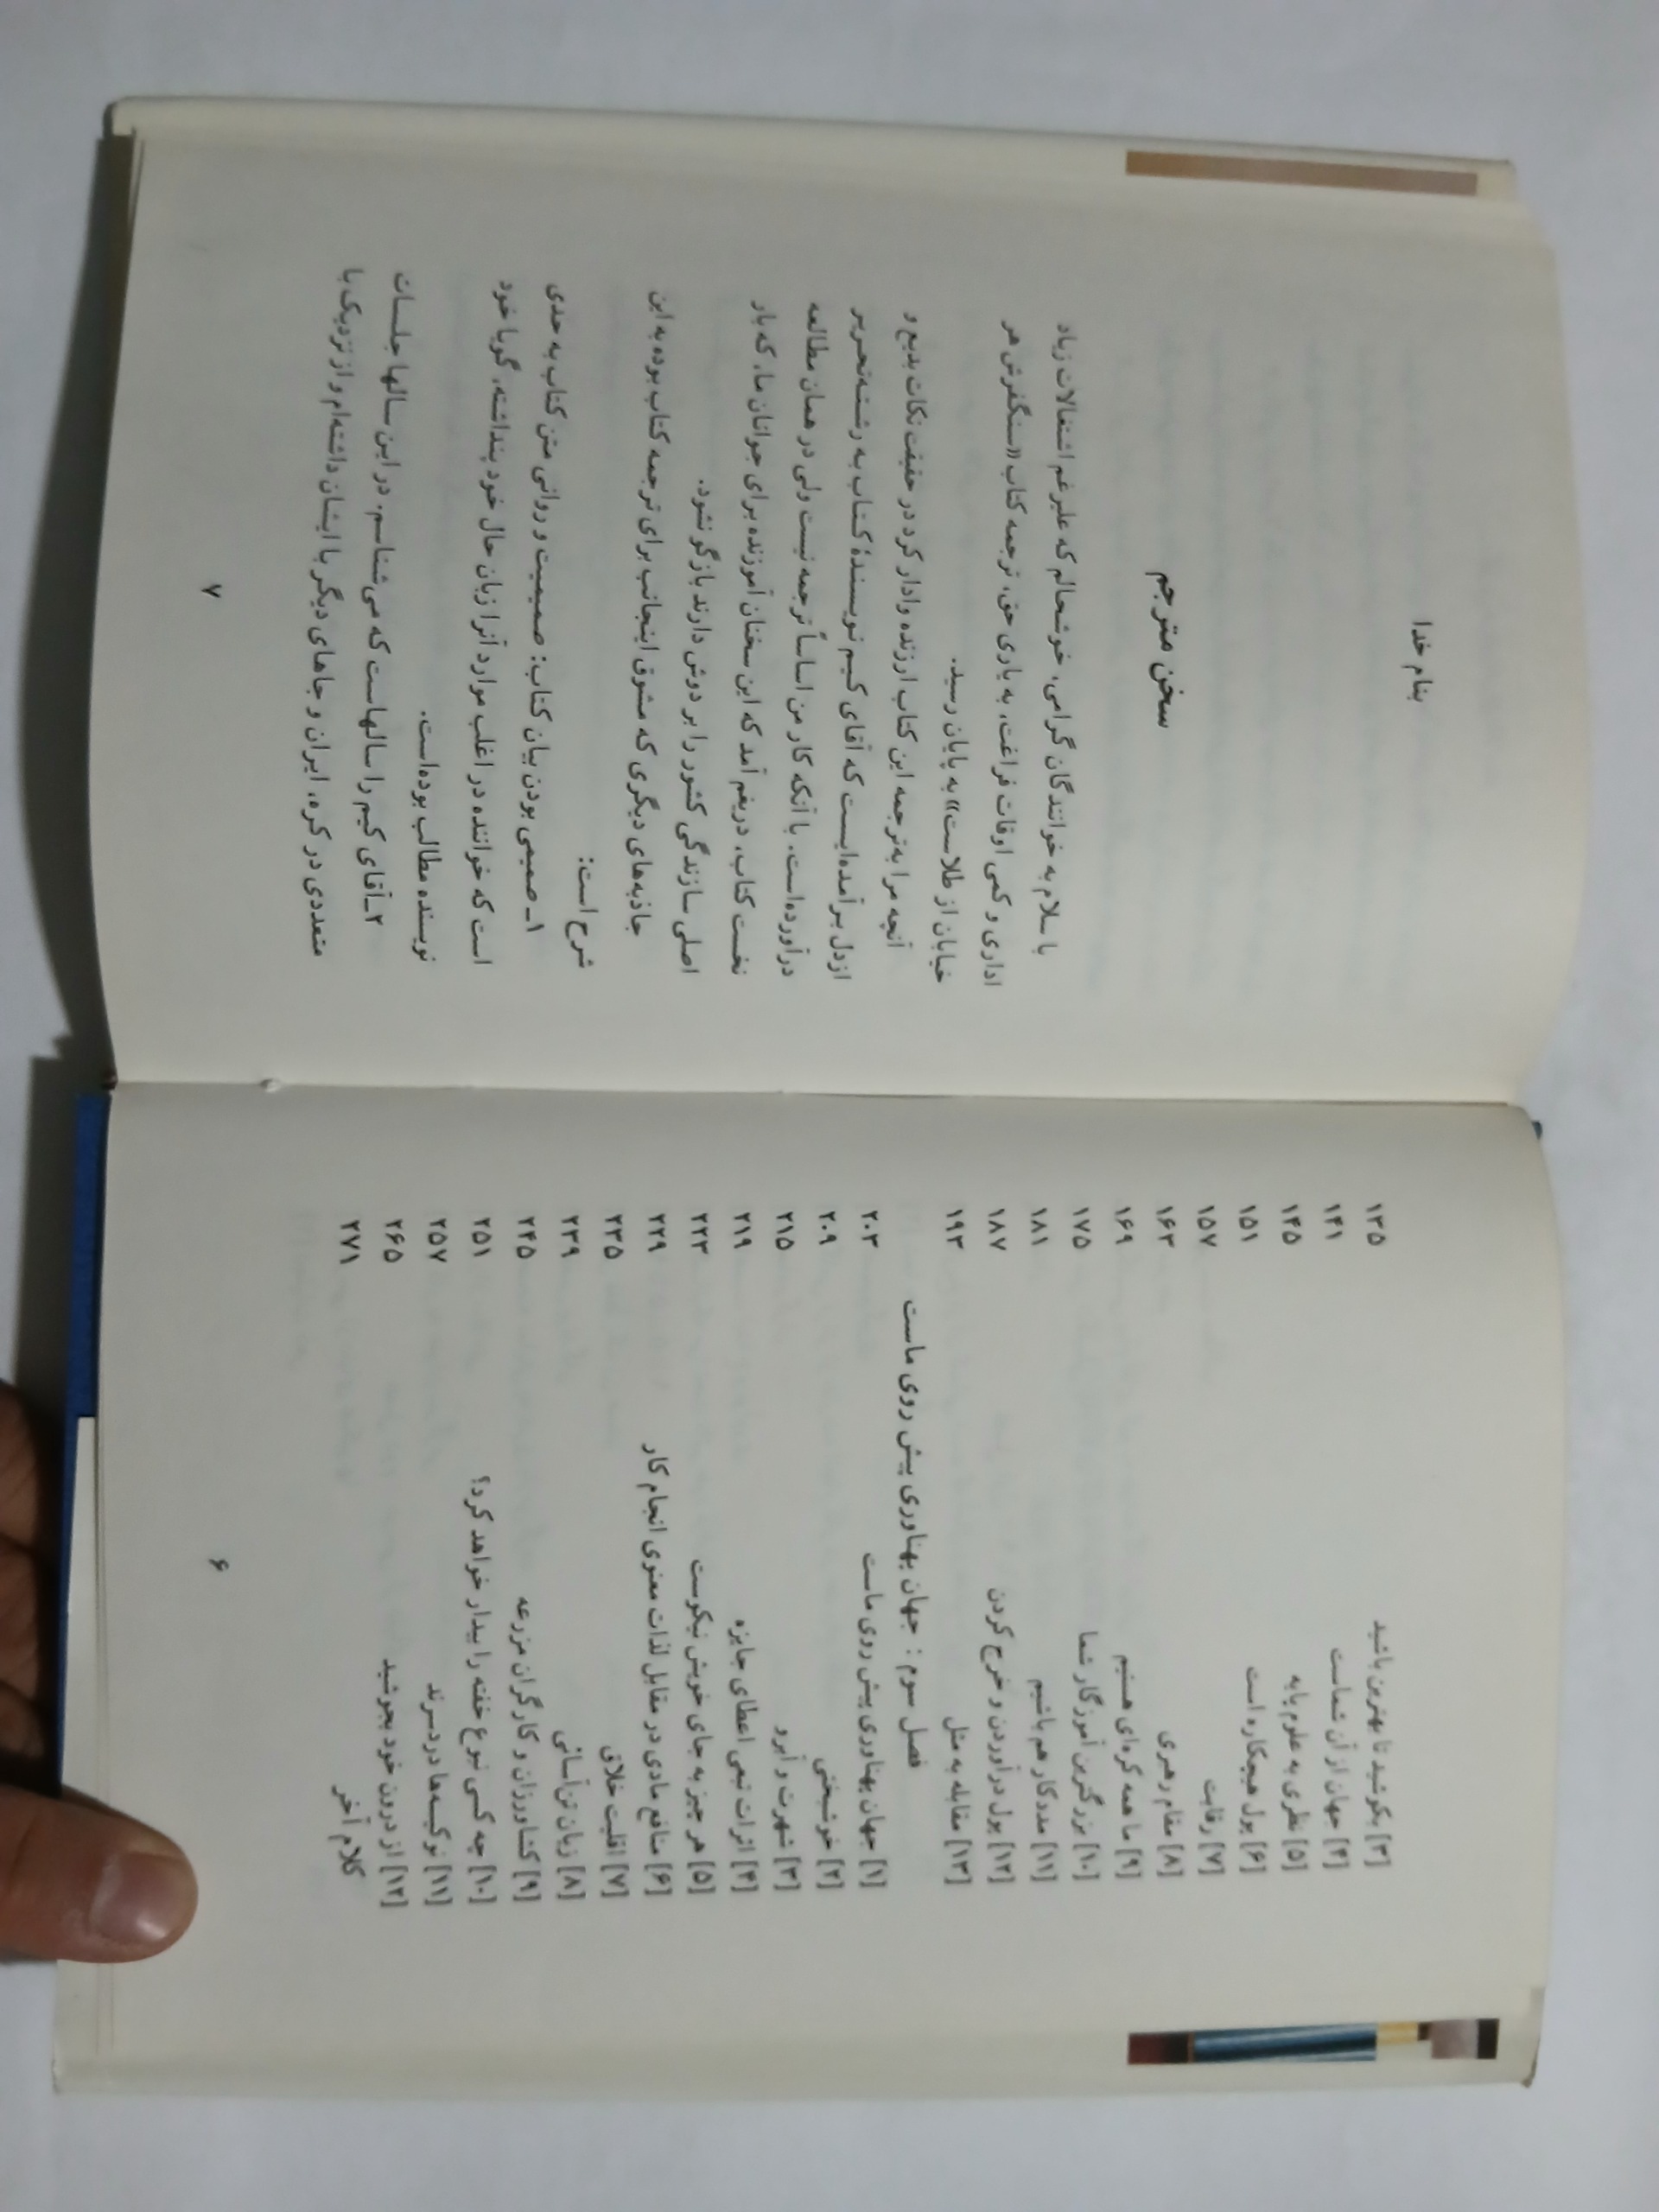 [۳] بکوشید تا بهترین باشید ۱۳۵
[۴] جهان از آن شماست ۱۴۱
[۵] نظری به علوم پایه ۱۴۵
[۶] پول هیچکاره است ۱۵۱
[۷] رقابت ۱۵۷
[۸] مقام رهبری ۱۶۳
[۹] ما همه کره‌ای هستیم ۱۶۹
[۱۰] بزرگترین آموزگار شما ۱۷۵
[۱۱] مددکار هم باشیم ۱۸۱
[۱۲] پول درآوردن و خرج کردن ۱۸۷
[۱۳] مقابله به مثل ۱۹۳
فصل سوم : جهان پهناوری پیش روی ماست
[۱] جهان پهناوری پیش روی ماست ۲۰۳
[۲] خوشبختی ۲۰۹
[۳] شهرت و آبرو ۲۱۵
[۴] اثرات تبعی اعطای جایزه ۲۱۹
[۵] هر چیز به جای خویش نیکوست ۲۲۳
[۶] منافع مادی در مقابل لذات معنوی انجام کار ۲۲۹
[۷] اقلیت خلاق ۲۳۵
[۸] زیان تن‌آسانی ۲۳۹
[۹] کشاورزان و کارگران مزرعه ۲۴۵
[۱۰] چه کسی نبوغ خفته را بیدار خواهد کرد؟ ۲۵۱
[۱۱] نوکیسه‌ها دردسرند ۲۵۷
[۱۲] از درون خود بجوشید ۲۶۵
کلام آخر ۲۷۱
۶
بنام خدا
سخن مترجم
با سلام به خوانندگان گرامی، خوشحالم که علیرغم اشتغالات زیاد
اداری و کمی اوقات فراغت، به یاری حق، ترجمه کتاب «سنگفرش هر
خیابان از طلاست» به پایان رسید.
آنچه مرا به ترجمه این کتاب ارزنده وادار کرد در حقیقت نکات بدیع و
ازدل برآمده‌ایست که آقای کیم نویسندهٔ کتاب به رشته تحریر
درآورده‌است. با آنکه کار من اساساً ترجمه نیست ولی در همان مطالعه
نخست کتاب، دریغم آمد که این سخنان آموزنده برای جوانان ما، که بار
اصلی سازندگی کشور را بر دوش دارند بازگو نشود.
جاذبه‌های دیگری که مشوق اینجانب برای ترجمه کتاب بوده به این
شرح است:
۱ـ صمیمی بودن بیان کتاب: صمیمیت و روانی متن کتاب به حدی
است که خواننده در اغلب موارد آنرا زبان حال خود پنداشته، گویا خود
نویسنده مطالب بوده‌است.
۲ـ آقای کیم را سالهاست که می‌شناسم. در این سالها جلسات
متعددی در کره، ایران و جاهای دیگر با ایشان داشته‌ام و از نزدیک با
۷